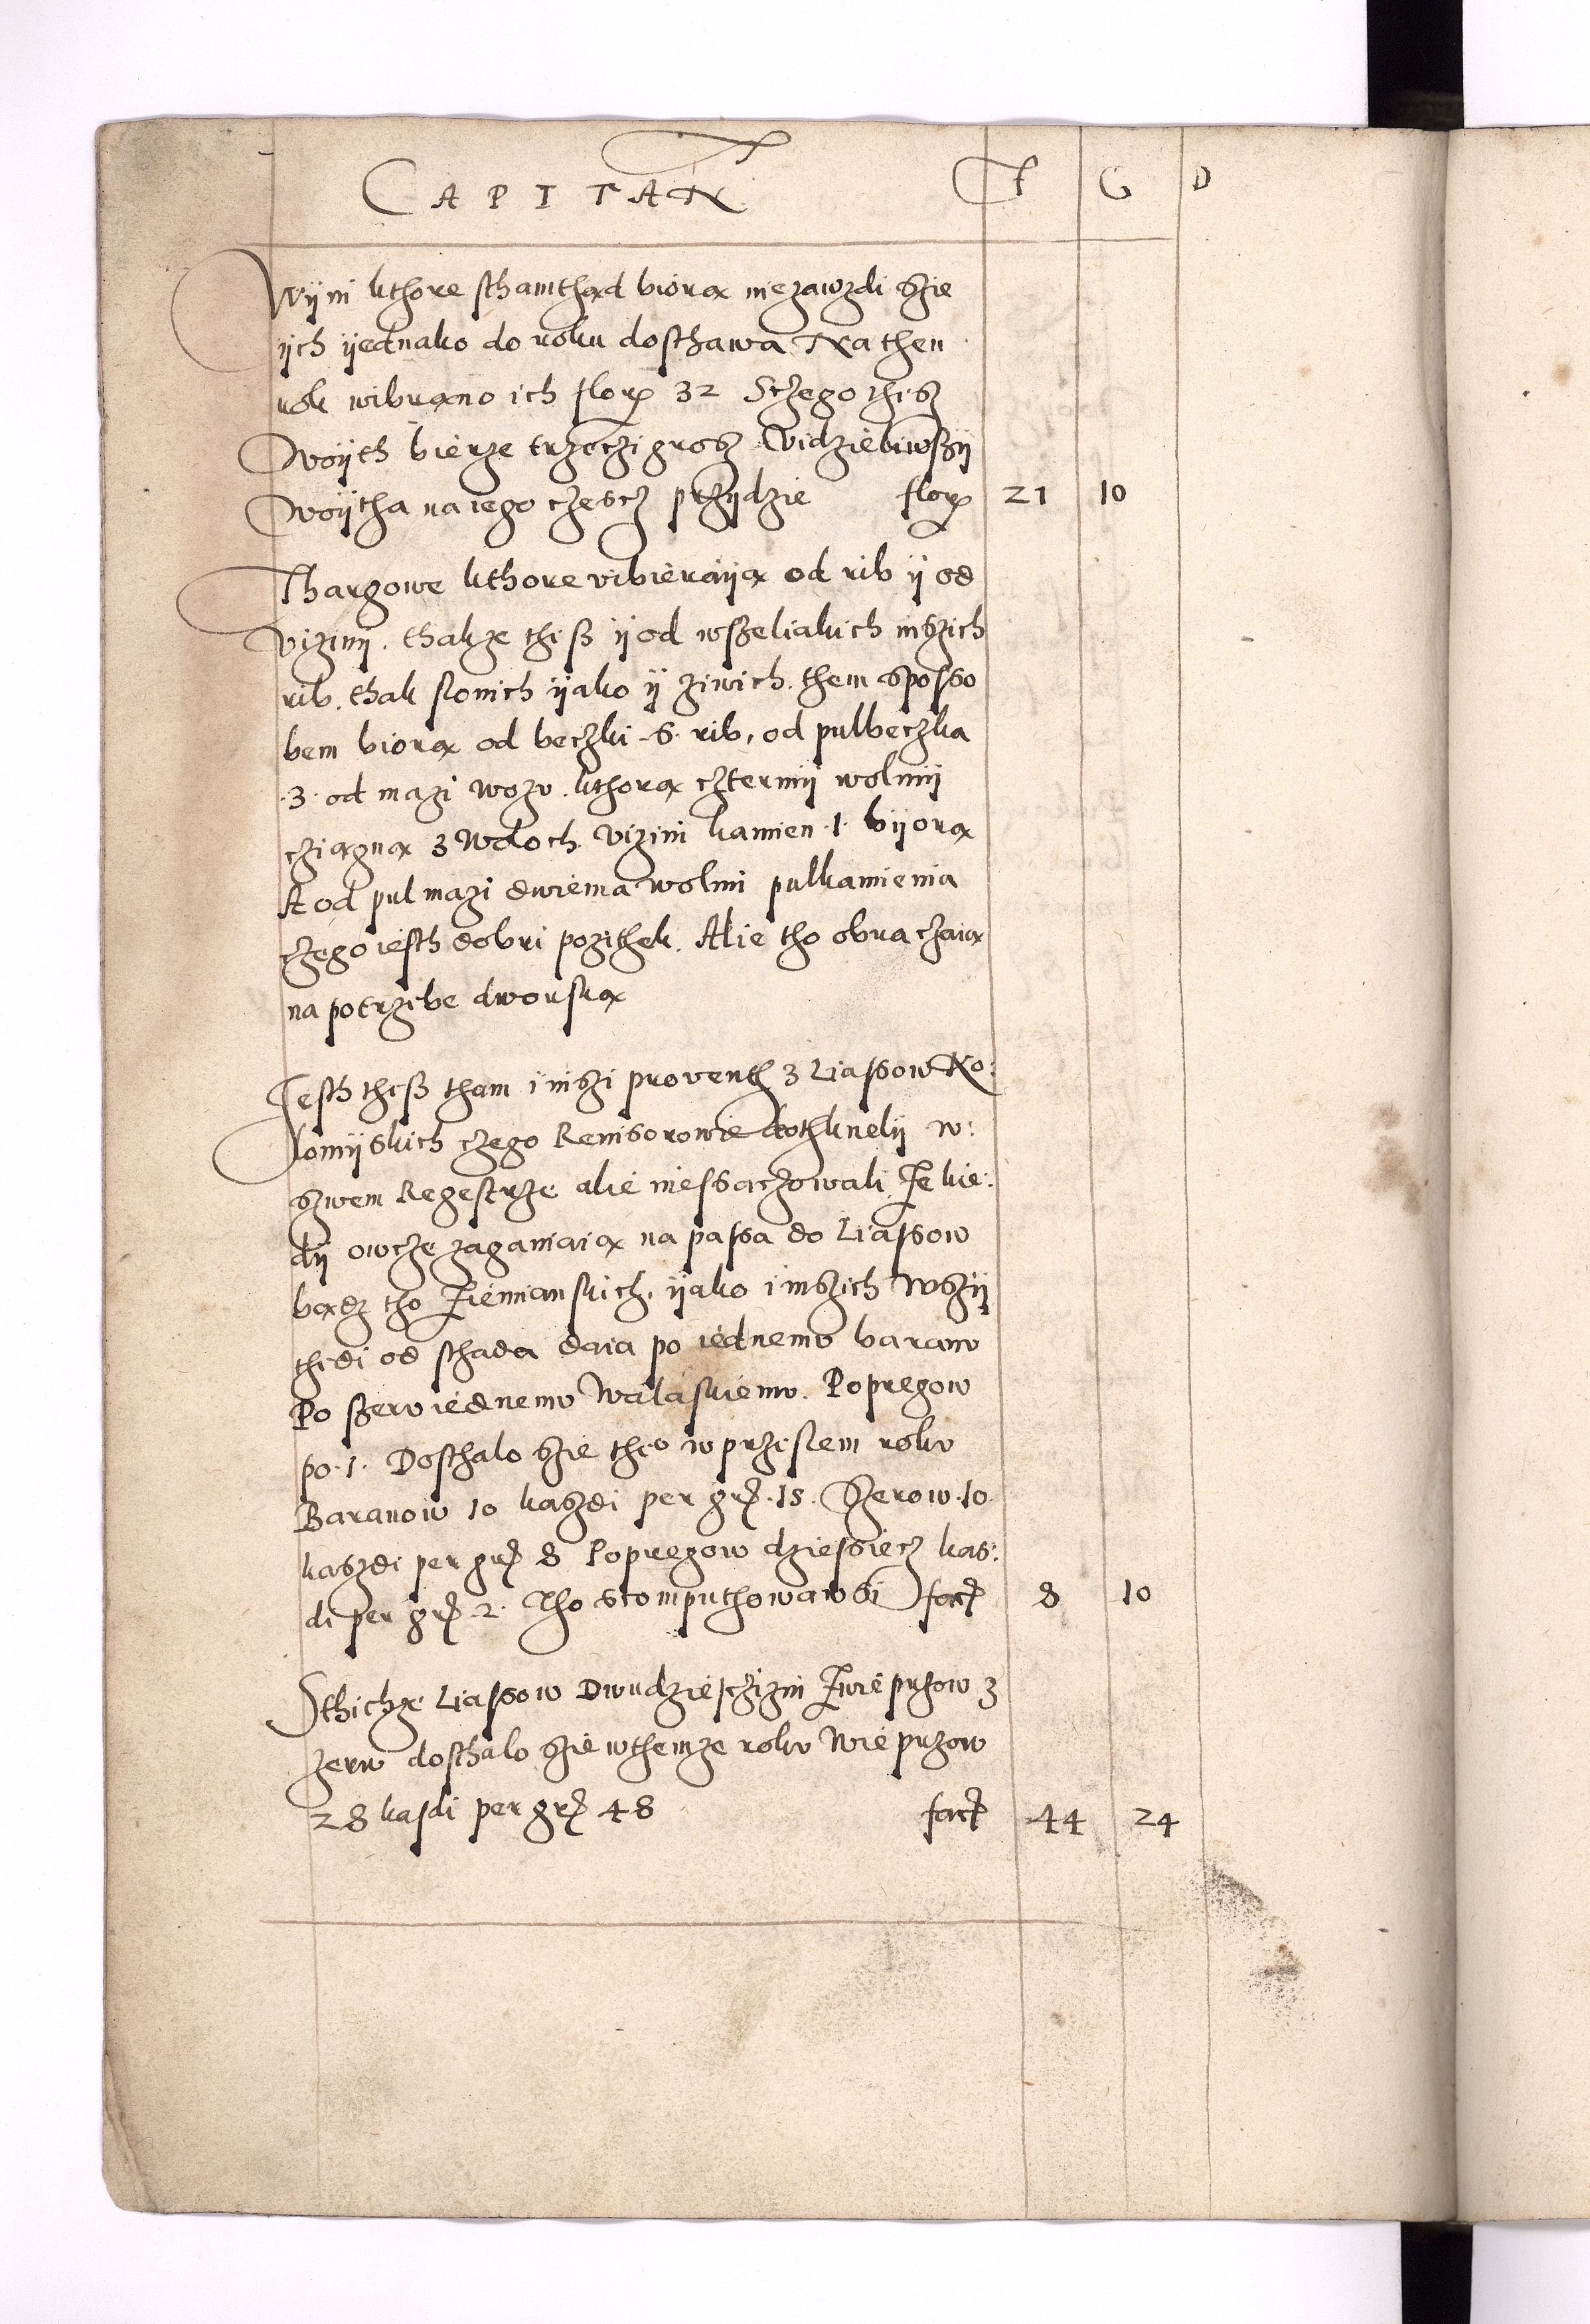 CAPITAN F G D
Wÿni kthore sthamthąd biorą niezawzdi szie
ÿch ÿednako do roku dosthawa Na then
rok wibrano ich flor 32 Sczego thesz
Woÿth bierze trzeczi grosz Vidzieliwszÿ
Woÿtha na iego czescz przÿdzie flor 21 10
Thargowe kthore vibieraÿą od rib ÿ od
vizini. thakze thesz ÿ od wszeliakich inszich
rib. thak slonich ÿako ÿ ziwich. them sposso
bem biorą od beczki .6. rib, od pulbeczka
.3. od mazi wozv. kthorą cztermÿ wolmÿ
cziągną z Woloch vizini kamien .1. bÿorą
A od pul mazi dwiema wolmi pulkamienia
czego iesth dobri pozithek. Alie tho obraczaią
na potrzebe dworską
Jesth thesz tham i inszi proventh z Liassow Ko:
lomÿskich czego Rewisorowie dothknelÿ w:
szwem Regestrze alie niessaczowali Je kie:
dÿ owcze zaganiaią na passa do Liassow
bądz tho Ziemianskich, ÿako i inszich Wszÿ
thedi od sthada daia po iednemv baranv
Po szerv iednemv Walaskiemv. Popregow
po .1. Dosthalo szie theo w przeslem rokv
Baranow 10 kaszdi per gr. 15. Szerow .10
kaszdi per gr 8 Popregow dziessiecz kas:
di per gr 2. Tho scomputhowawsi facit 8 10
Sthichze Liassow Dwudziesczizni Zwieprzow z
zerv dosthalo szie wthemze rokv Wieprzow
28 kasdi per gr 48 facit 44 24